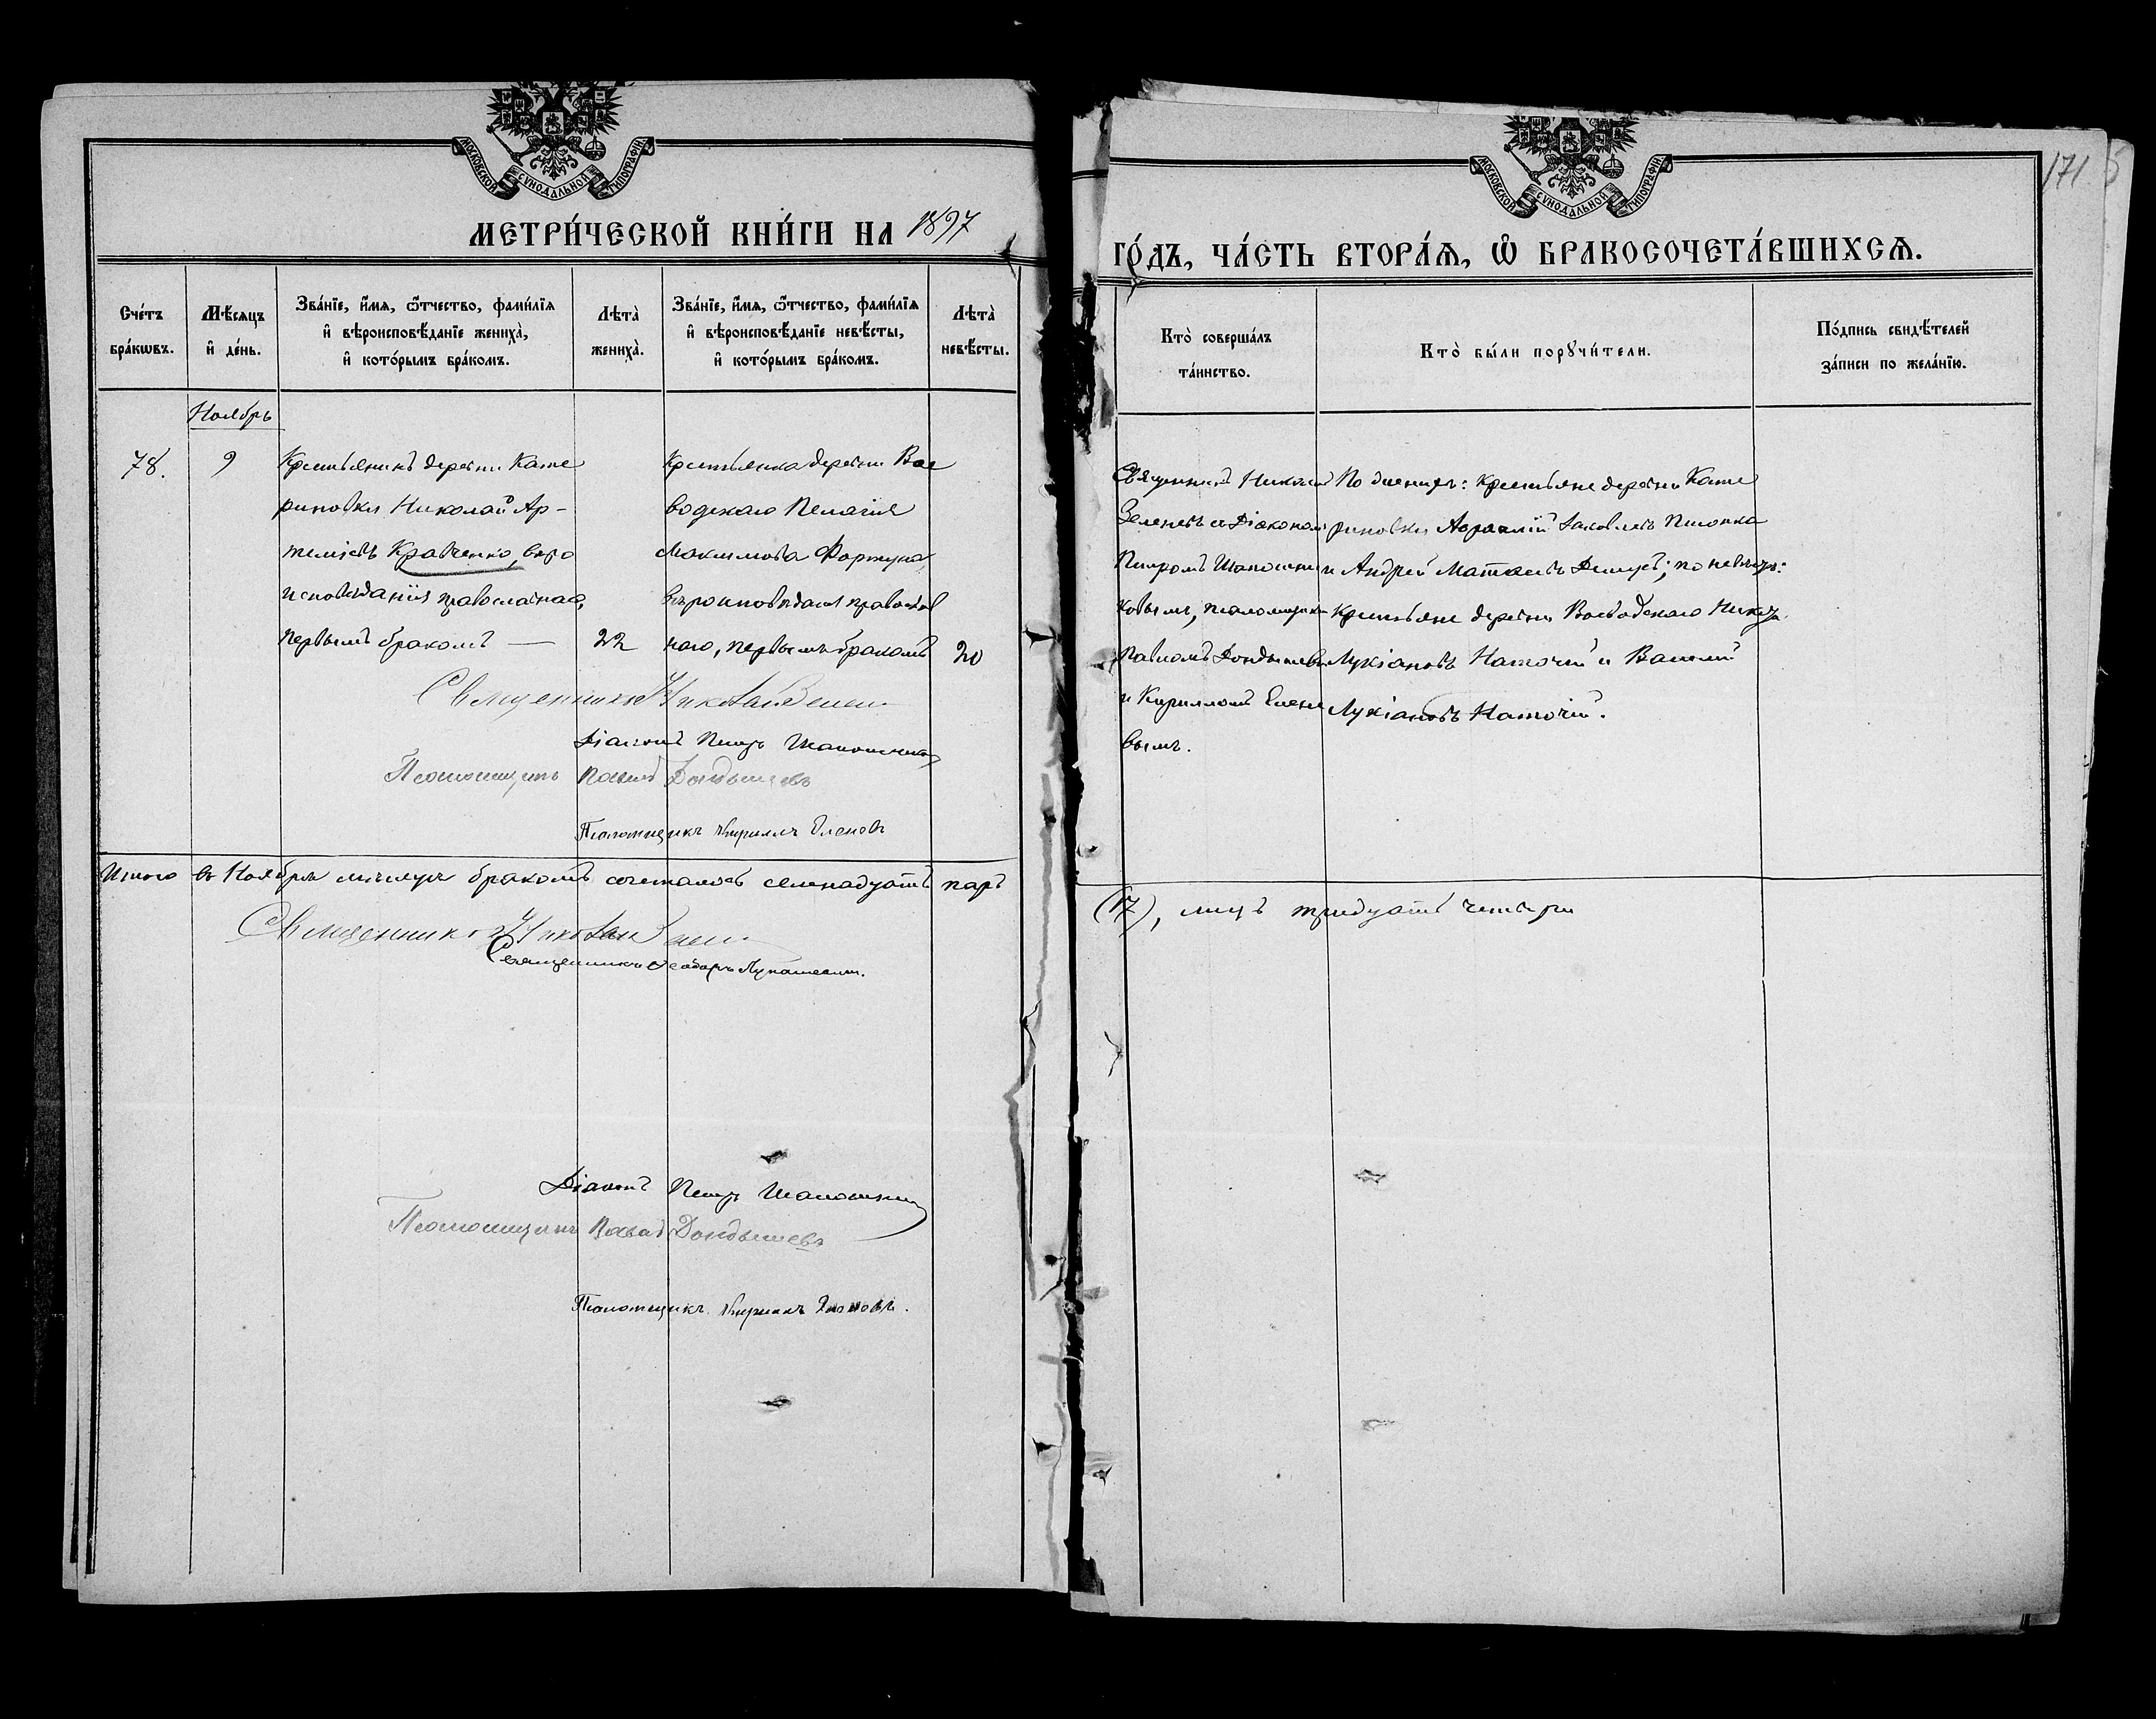 МОСКОВСКОЙ СѴНОДАЛЬНОЙ ТИПОГРАФІИ
МЕТРИ́ЧЕСКОЙ КНИ́ГИ НА 1897
Сче́тъ бра́кѡвъ.
Мѣ́сяцъ и҆ де́нь.
Зва́нїе, и҆́мя, ѻ҆́тчество, фами́лїя
и҆ вѣроисповѣ́данїе жениха̀,
и҆ кото́рымъ бра́комъ.
Лѣта̀ жениха̀.
Зва́нїе, и҆́мя, ѻ҆́тчество, фами́лїя
и҆ вѣроисповѣ́данїе невѣ́сты,
и҆ кото́рымъ бра́комъ.
Лѣта̀ невѣ́сты.
Ноябрь
78.
9
Крестьянинъ деревни Кате
риновки Николай Ар-
темїевъ Кравченко, веро
исповѣданія православнаго,
первымъ бракомъ —
22
Крестьянка деревни Вое
водскаго Пелагія
Максимова Фортуна,
вѣроисповѣданія православ
наго, первымъ бракомъ
20
Священникъ Николай Зелен
Діаконъ Петръ Шапошников
Псаломщикъ Павелъ Дондышевъ
Псаломщикъ Кириллъ Еленовъ
Итого въ Ноябрѣ мѣсяцѣ бракомъ сочеталось семнадцать паръ
Священникъ Николай Зелен
Священникъ Ѳеодоръ Лукашевичъ.
Діаконъ Петръ Шапошников
Псаломщикъ Павелъ Дондышевъ
Псаломщикъ Кириллъ Еленовъ.
171
МОСКОВСКОЙ СѴНОДАЛЬНОЙ ТИПОГРАФІИ
ГО́ДЪ, ЧА́СТЬ ВТОРА́Я, Ѽ БРАКОСОЧЕТА́ВШИХСЯ.
Кто̀ соверша́лъ
та́инство.
Кто̀ бы́ли порꙋчи́тели.
По́дпись свидѣ́телей
за́писи по жела́нїю.
Священникъ Николай
Зеленевъ съ Діакономъ
Петромъ Шапошни
ковымъ, псаломщик
Павломъ Дондышевы
и Кирилломъ Елено
вымъ.
По женихѣ: крестьяне деревни Кате
риновки Авраамій Іаковлевъ
и Андрей Матвеевъ; по невѣстѣ:
Крестьяне деревни Воеводскаго
Лукіановъ Наточій и Василій
Лукіановъ Наточій.
(17), лицъ тридцать четыре